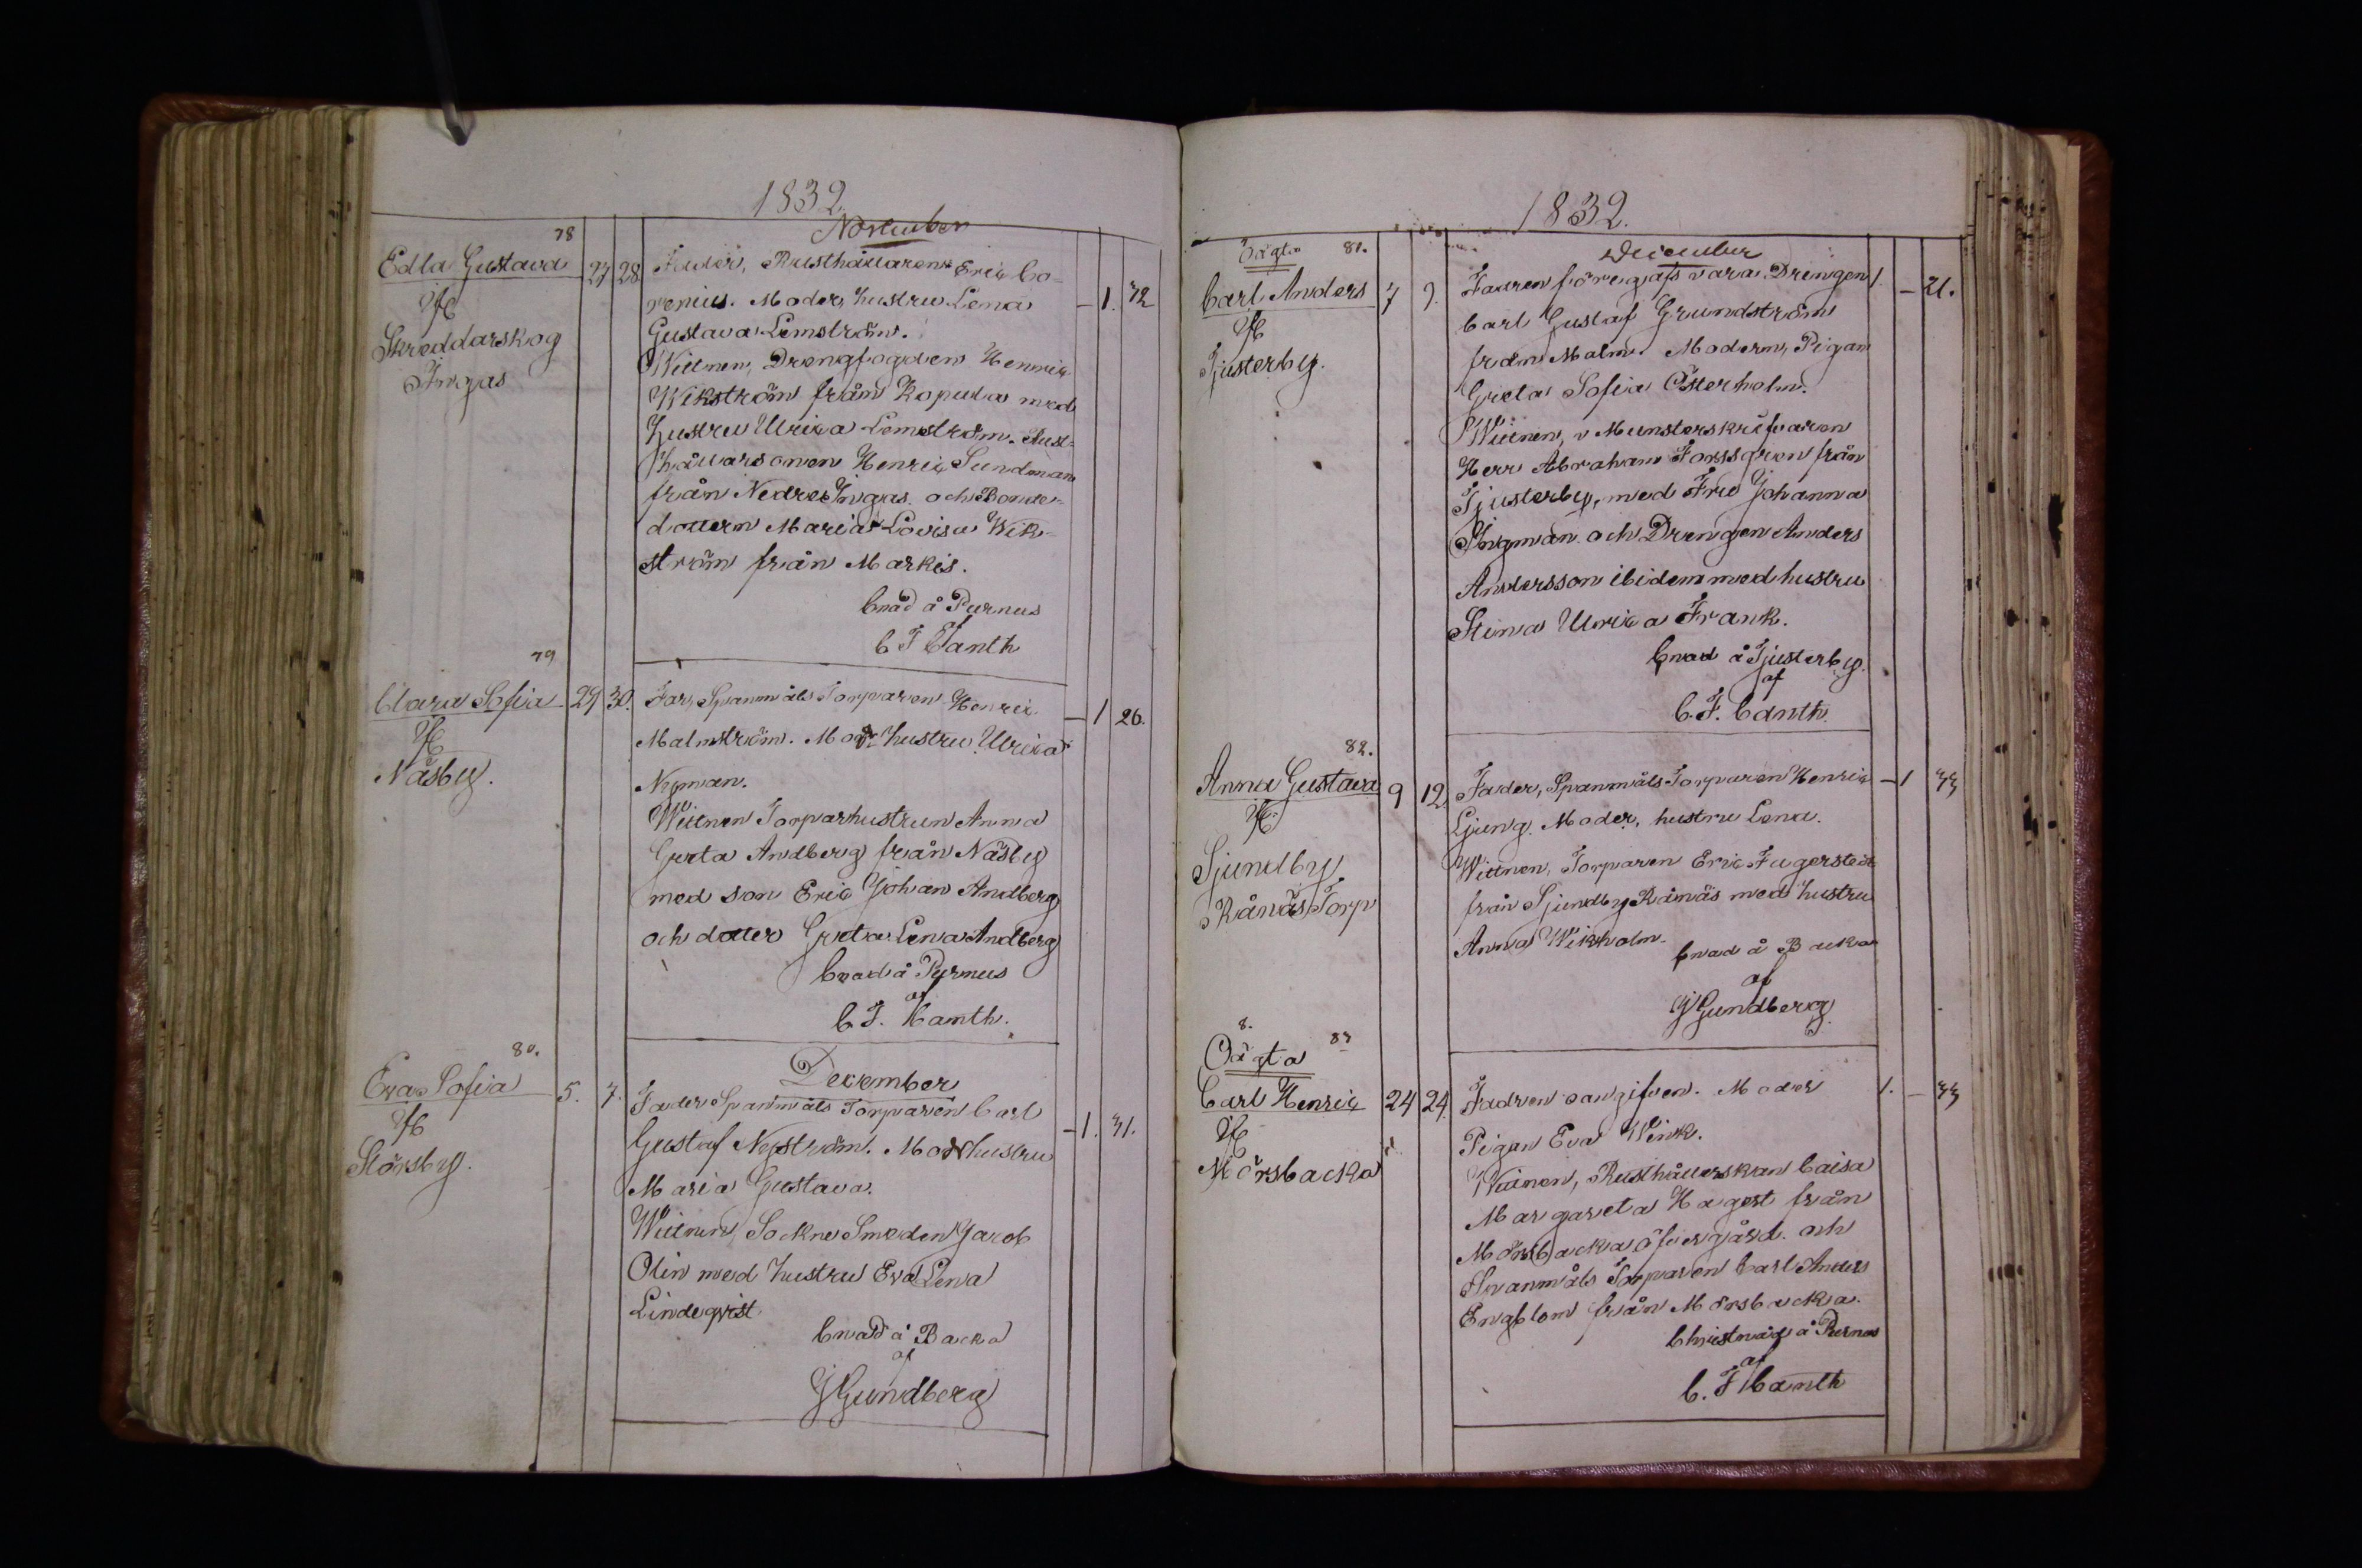 1832.
November
78
Edla Gustava 27 28. Fader, Rusthållaren Eric Co-
renius. Moder, hustru Lena — 1. 32
Skreddarskog Gustava Lemström.
Ingas Wittnen, Drengfogden Henric
Wikström från Kopula med
hustru Ulrica Lemström. Rust-
hållarsonen Henric Sundman
från Nedre Ingas och Bonde-
dottern Maria Lovisa Wik-
ström från Markis.
Cnad å Purnus
af
C F Canth
79
Clara Sofia 29 30. Far, Spanmåls Torparen Henric — 1 26.
Malmström. Mor hustru Ulrica
Näsby. Nyman.
Wittnen Torparhustrun Anna
Greta Andberg från Näsby
med son Eric Johan Andberg
och dotter Greta Lena Andberg
Cnad å Purnus
af
C F. Canth.
December
80.
Eva Sofia 5. 7. Fader Spanmåls Torparen Carl
Gustaf Nyström. Mor hustru — 1. 31.
Störsby. Maria Gustava.
Wittnen, Sockne Smeden Jacob
Olin med hustru Eva Lena
Lindeqvist
Cnad å Backa
af
J Gundberg
1832.
December
Oägta 81.
Carl Anders 7 9. Fadren föregafs vara Drengen 1. — 21.
Carl Gustaf Grundström
Tjusterby. från Malm. Modern, Pigan
Greta Sofia Österholm.
Wittnen, v Munsterskrifvaren
Herr Abraham Forssgren från
Tjusterby, med Fru Johanna
Ingman och Drengen Anders
Andersson ibidem med hustru
Stina Ulrica Frank.
Cnad å Tjusterby.
af
C. F. Canth.
82.
Anna Gustava 9 12. Fader, Spanmåls-Torparen Henric — 1 33
Ljung. Moder, hustru Lena.
Sjundby Wittnen, Torparen Eric Fagerstedt
Rånäs Torp från Sjundby Rånäs med hustru
Anna Wikholm.
Cnad å Backa
af
J Gundberg.
8.
Oägta 83
Carl Henric 24 24. Fadren oangifven. Moder 1. — 33
Pigan Eva Wink.
Mörsbacka Wittnen, Rusthållerskan Caisa
Margareta Hagert från
Mörsbacka öfvergård. och
Spanmåls Torparen Carl Anders
Engblom från Mörsbacka.
Christnad å Purnus
af
C. F Canth